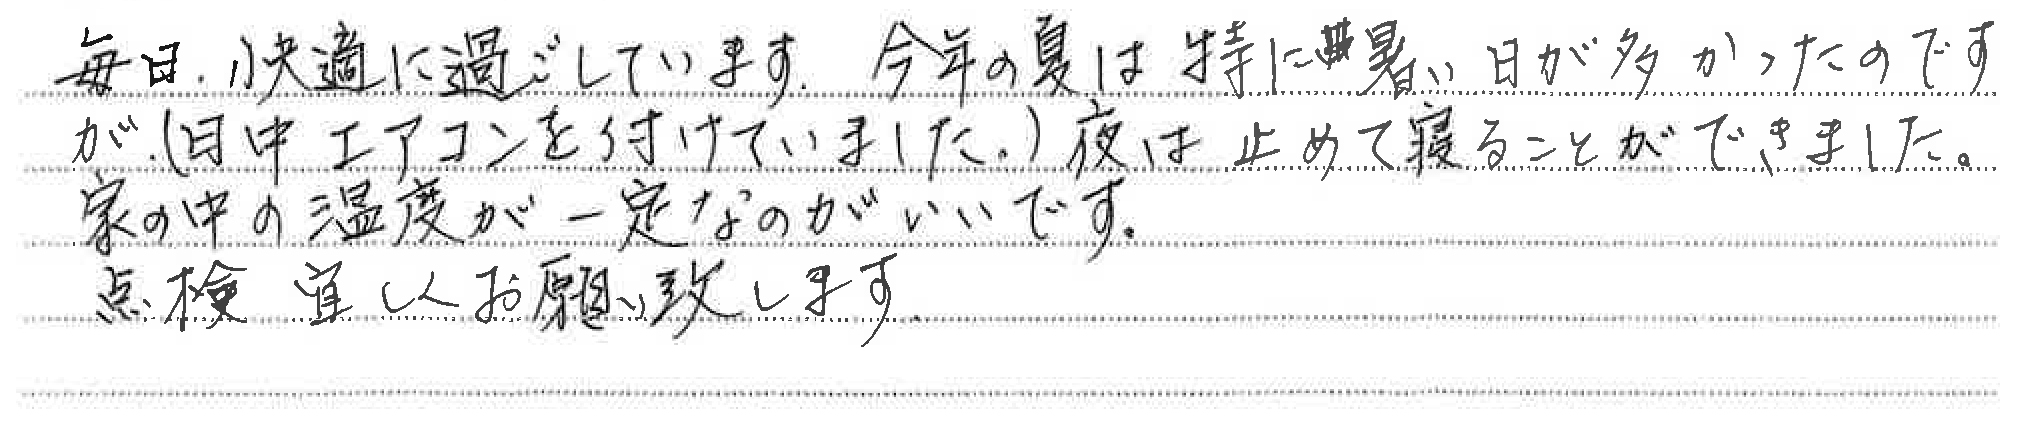 毎日、快適に過ごしています。今年の夏は特に暑い日が多かったのです
が、(日中エアコンを付けていました。)夜は止めて寝ることができました。
家の中の温度が一定なのがいいです。
点検宜しくお願い致します。